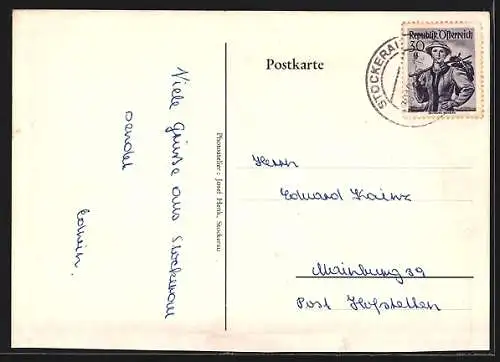 Viele Grüsse aus Stockerau
sendet
Edwin.
Photoatelier: Josef Henk, Stockerau
Postkarte
STOCKERAU
Republik Österreich
30
g
Herrn
Eduard Kainz
Mainburg 39
Post Hofstetten